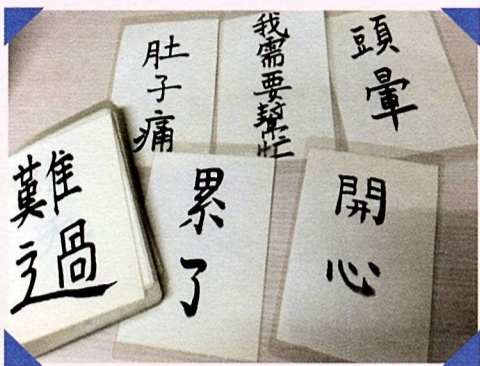 肚子痛
我需要幫忙
頭暈
難過
累了
開心